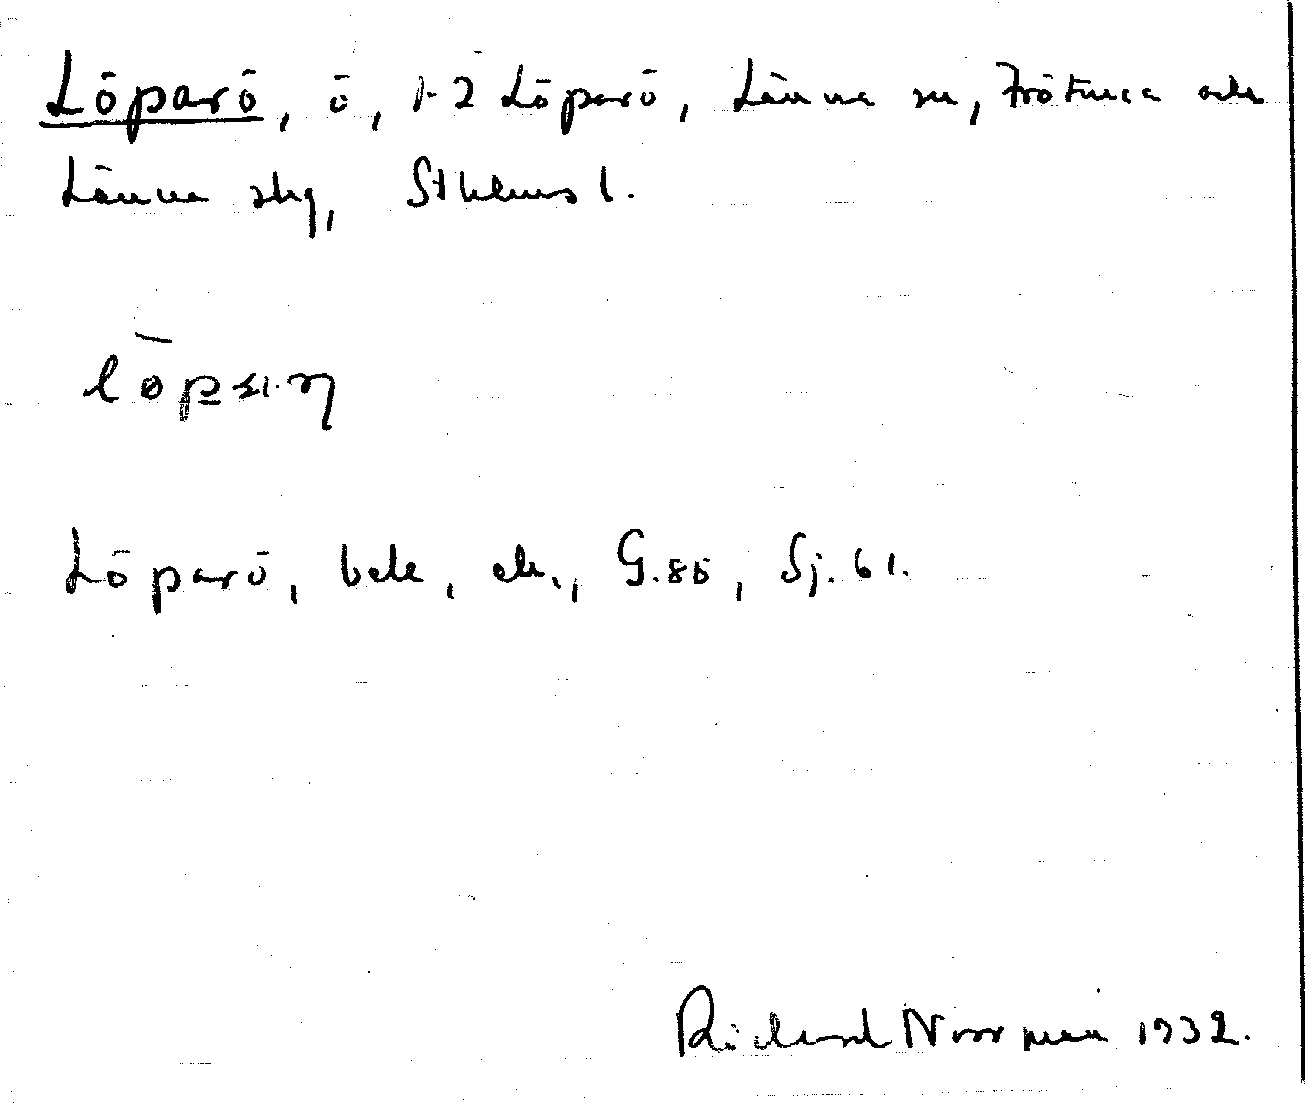 Löparö, ö, 1-2 Löparö, Länna sn, Frötuna och
Länna skg, Sthlms l.
Löparö, bek, ek., G.85, Sj.61.
Richard Norrman 1932.